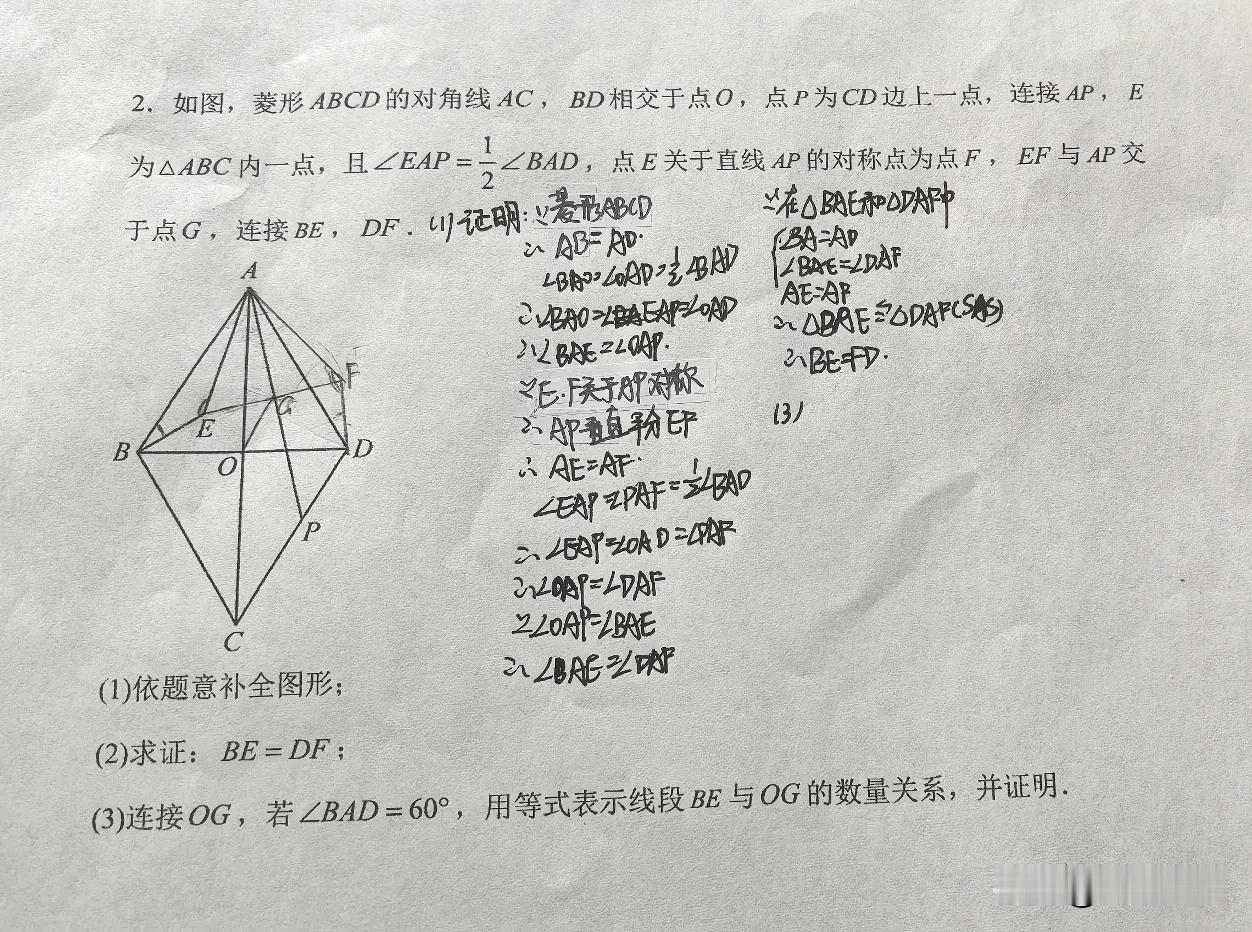 2. 如图，菱形ABCD的对角线AC，BD相交于点O，点P为CD边上一点，连接AP，E
为△ABC内一点，且∠EAP=1/2∠BAD，点E关于直线AP的对称点为点F，EF与AP交
于点G，连接BE，DF.
(1)证明:∵菱形ABCD
∴AB=AD.
∠BAO=∠OAD=1/2∠BAD
∴∠BAO=∠EAP=∠OAD
∴∠BAE=∠OAP.
∵E.F关于AP对称
∴AP垂直平分EF
∴AE=AF.
∠EAP=∠PAF=1/2∠BAD
∴∠EAP=∠OAD=∠PAF
∴∠OAP=∠DAF
∵∠OAP=∠BAE
∴∠BAE=∠DAF
∵在△BAE和△DAF中
BA=AD
∠BAE=∠DAF
AE=AF
∴△BAE≌△DAF(SAS)
∴BE=FD.
(3)
A
F
G
E
B
O
D
P
C
(1)依题意补全图形；
(2)求证：BE=DF；
(3)连接OG，若∠BAD=60°，用等式表示线段BE与OG的数量关系，并证明.